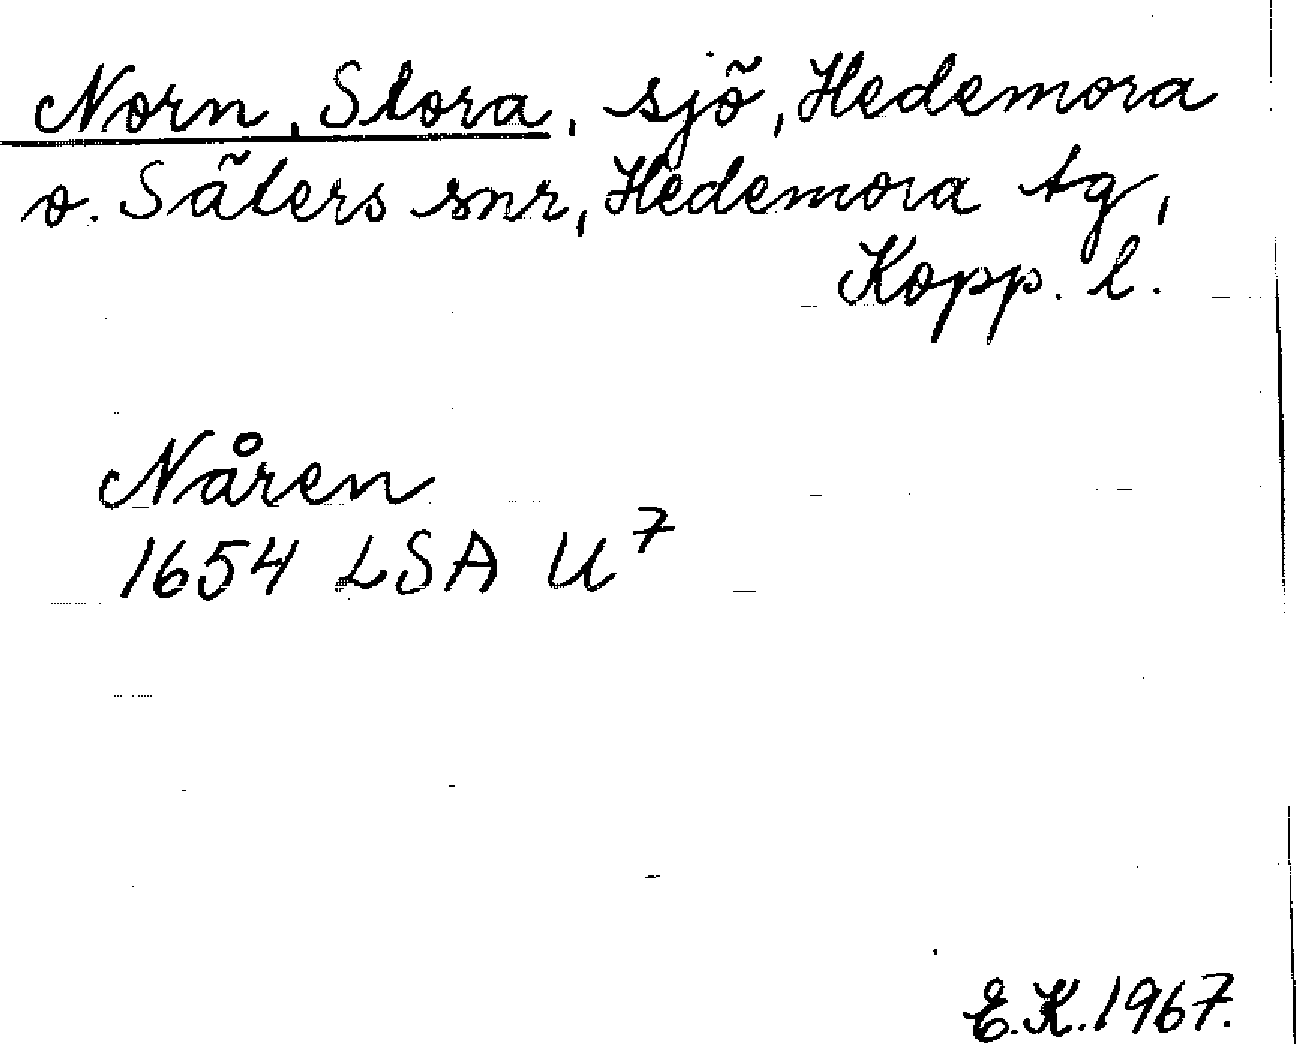 Norn, Stora, sjö, Hedemora
o. Säters snr, Hedemora tg,
Kopp. l.
Nåren
1654 LSA U⁷
E.K. 1967.